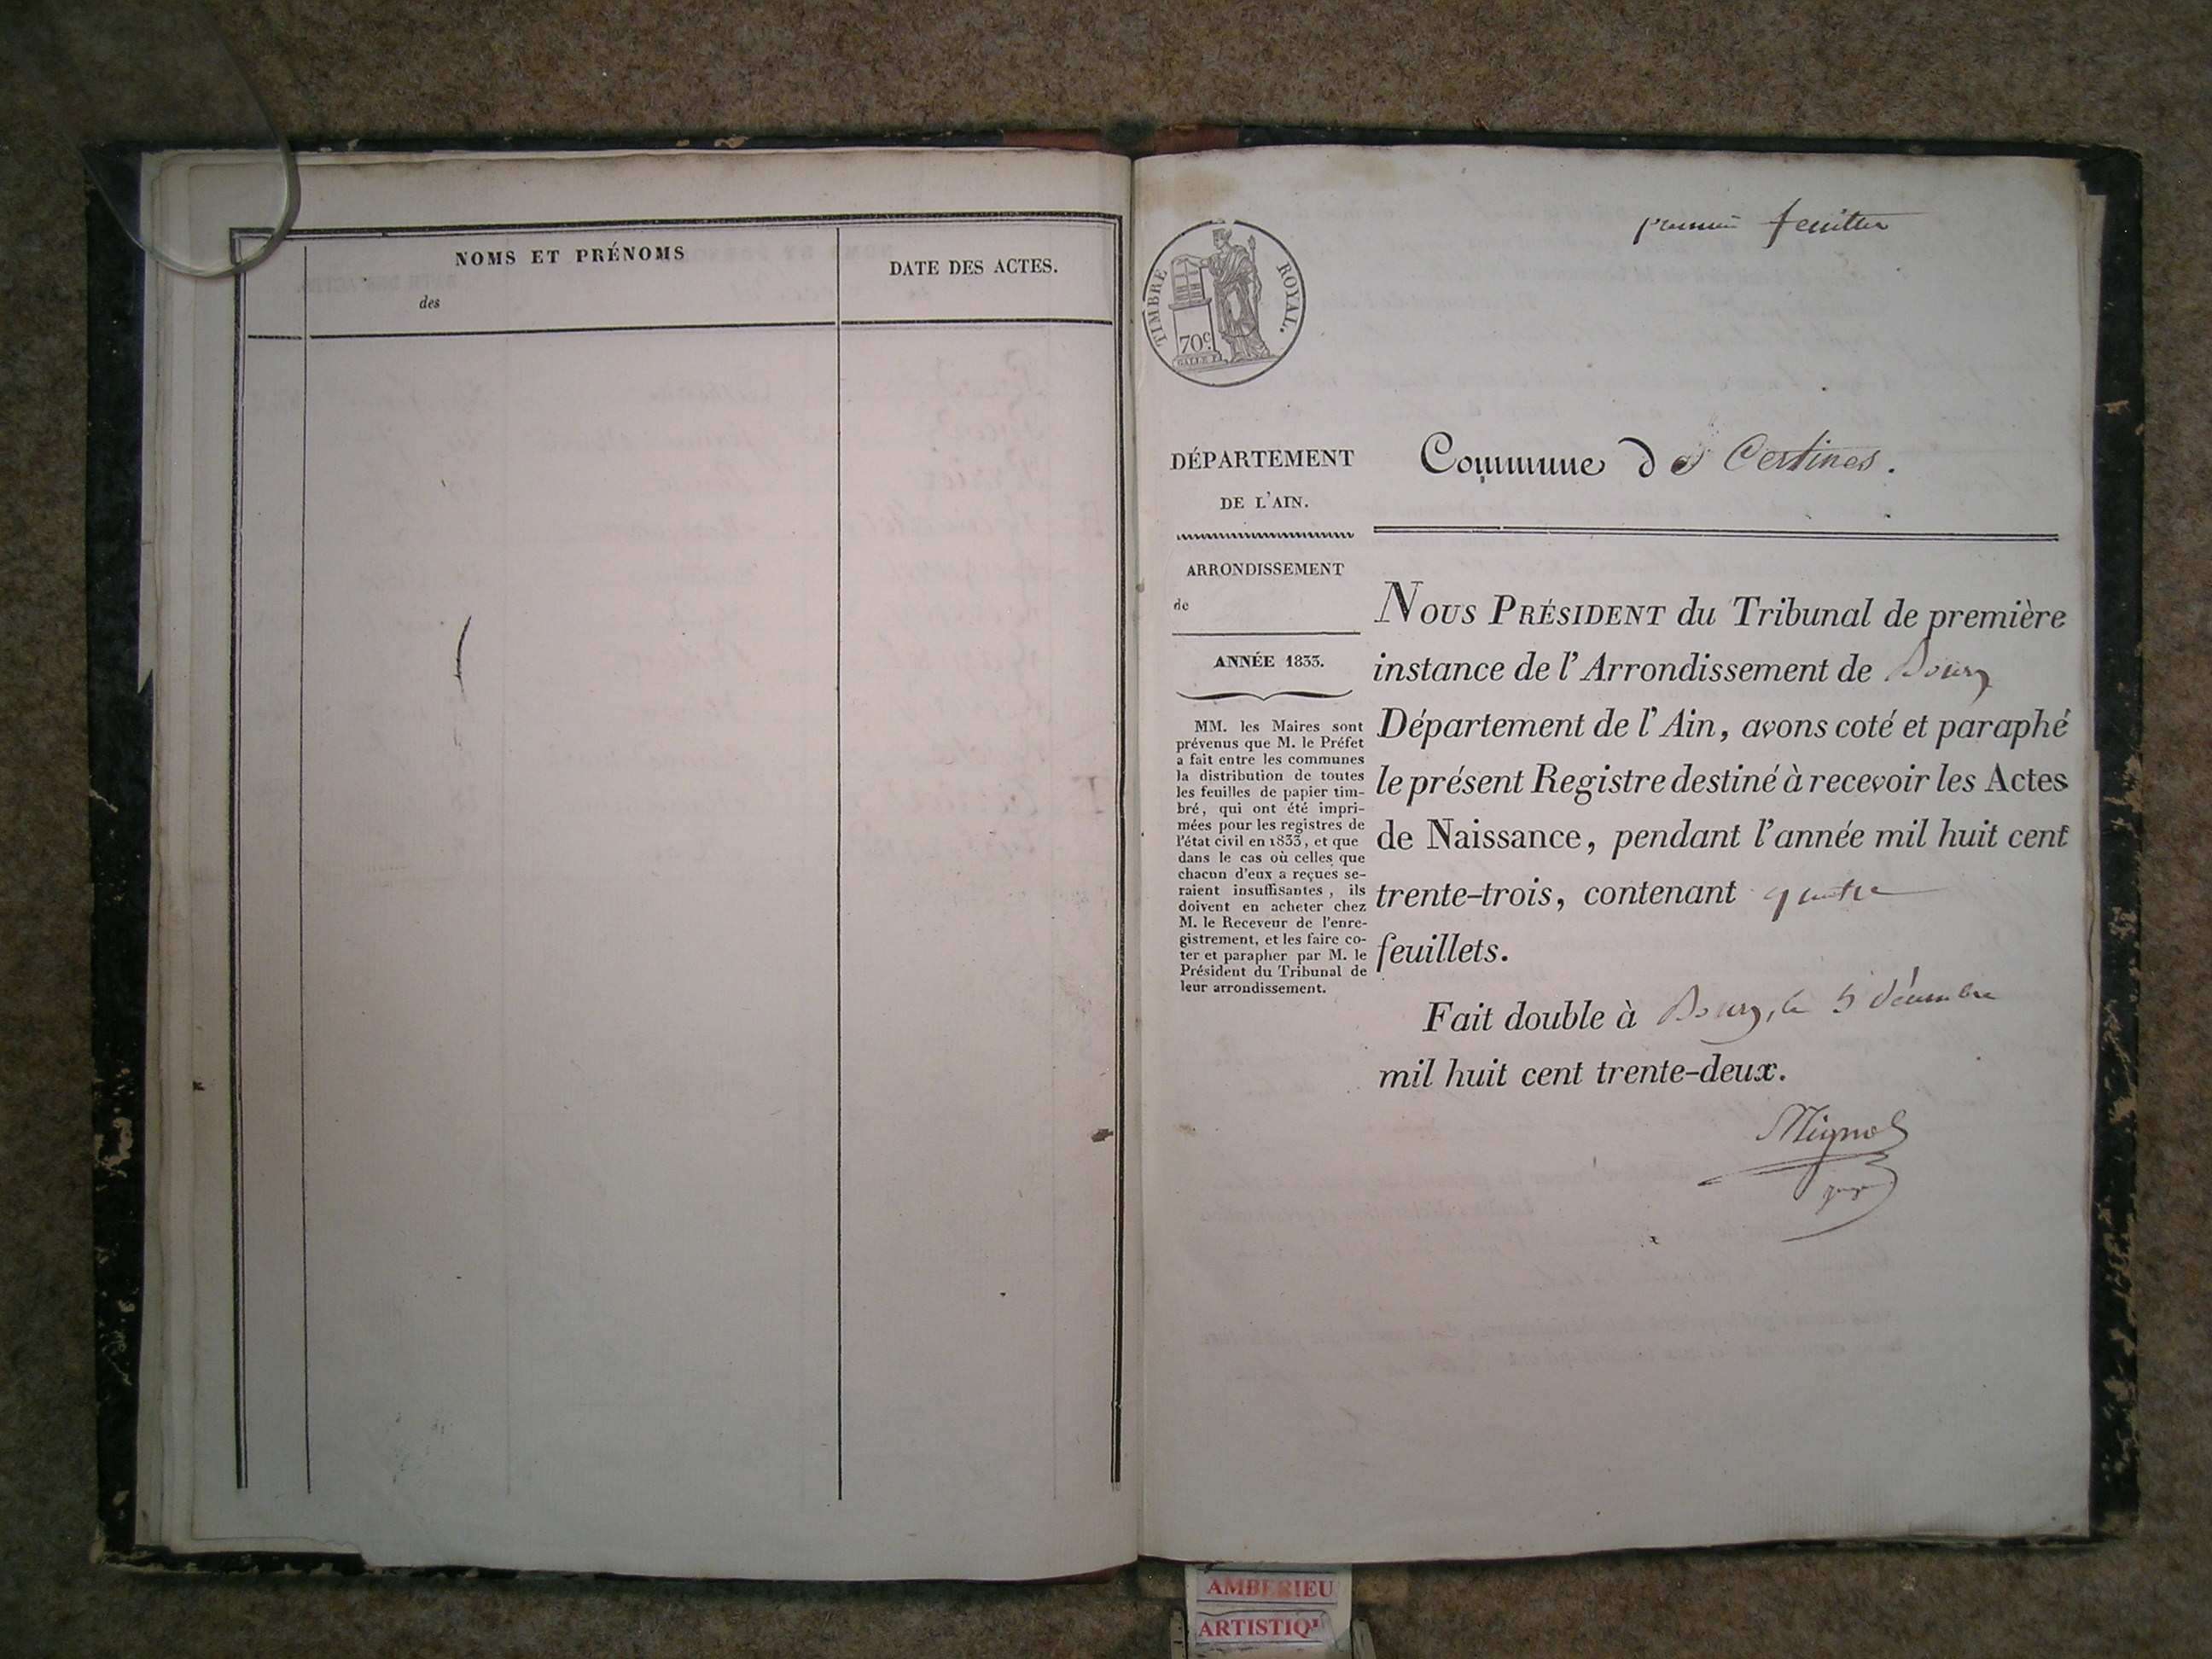 NOMS ET PRÉNOMS
des
DATE DES ACTES.
premier feuillet
TIMBRE ROYAL.
70c.
GALLE F.
DÉPARTEMENT
DE L'AIN.
ARRONDISSEMENT
de
ANNÉE 1833.
MM. les Maires sont
prévenus que M. le Préfet
a fait entre les communes
la distribution de toutes
les feuilles de papier tim-
bré, qui ont été impri-
mées pour les registres de
l'état civil en 1833, et que
dans le cas où celles que
chacun d'eux a reçues se-
raient insuffisantes, ils
doivent en acheter chez
M. le Receveur de l'enre-
gistrement, et les faire co-
ter et parapher par M. le
Président du Tribunal de
leur arrondissement.
Commune de Certines.
NOUS PRÉSIDENT du Tribunal de première
instance de l'Arrondissement de Bourg
Département de l'Ain, avons coté et paraphé
le présent Registre destiné à recevoir les Actes
de Naissance, pendant l'année mil huit cent
trente-trois, contenant quatre
feuillets.
Fait double à Bourg, le 5 décembre
mil huit cent trente-deux.
juge
AMBERIEU
ARTISTIQU